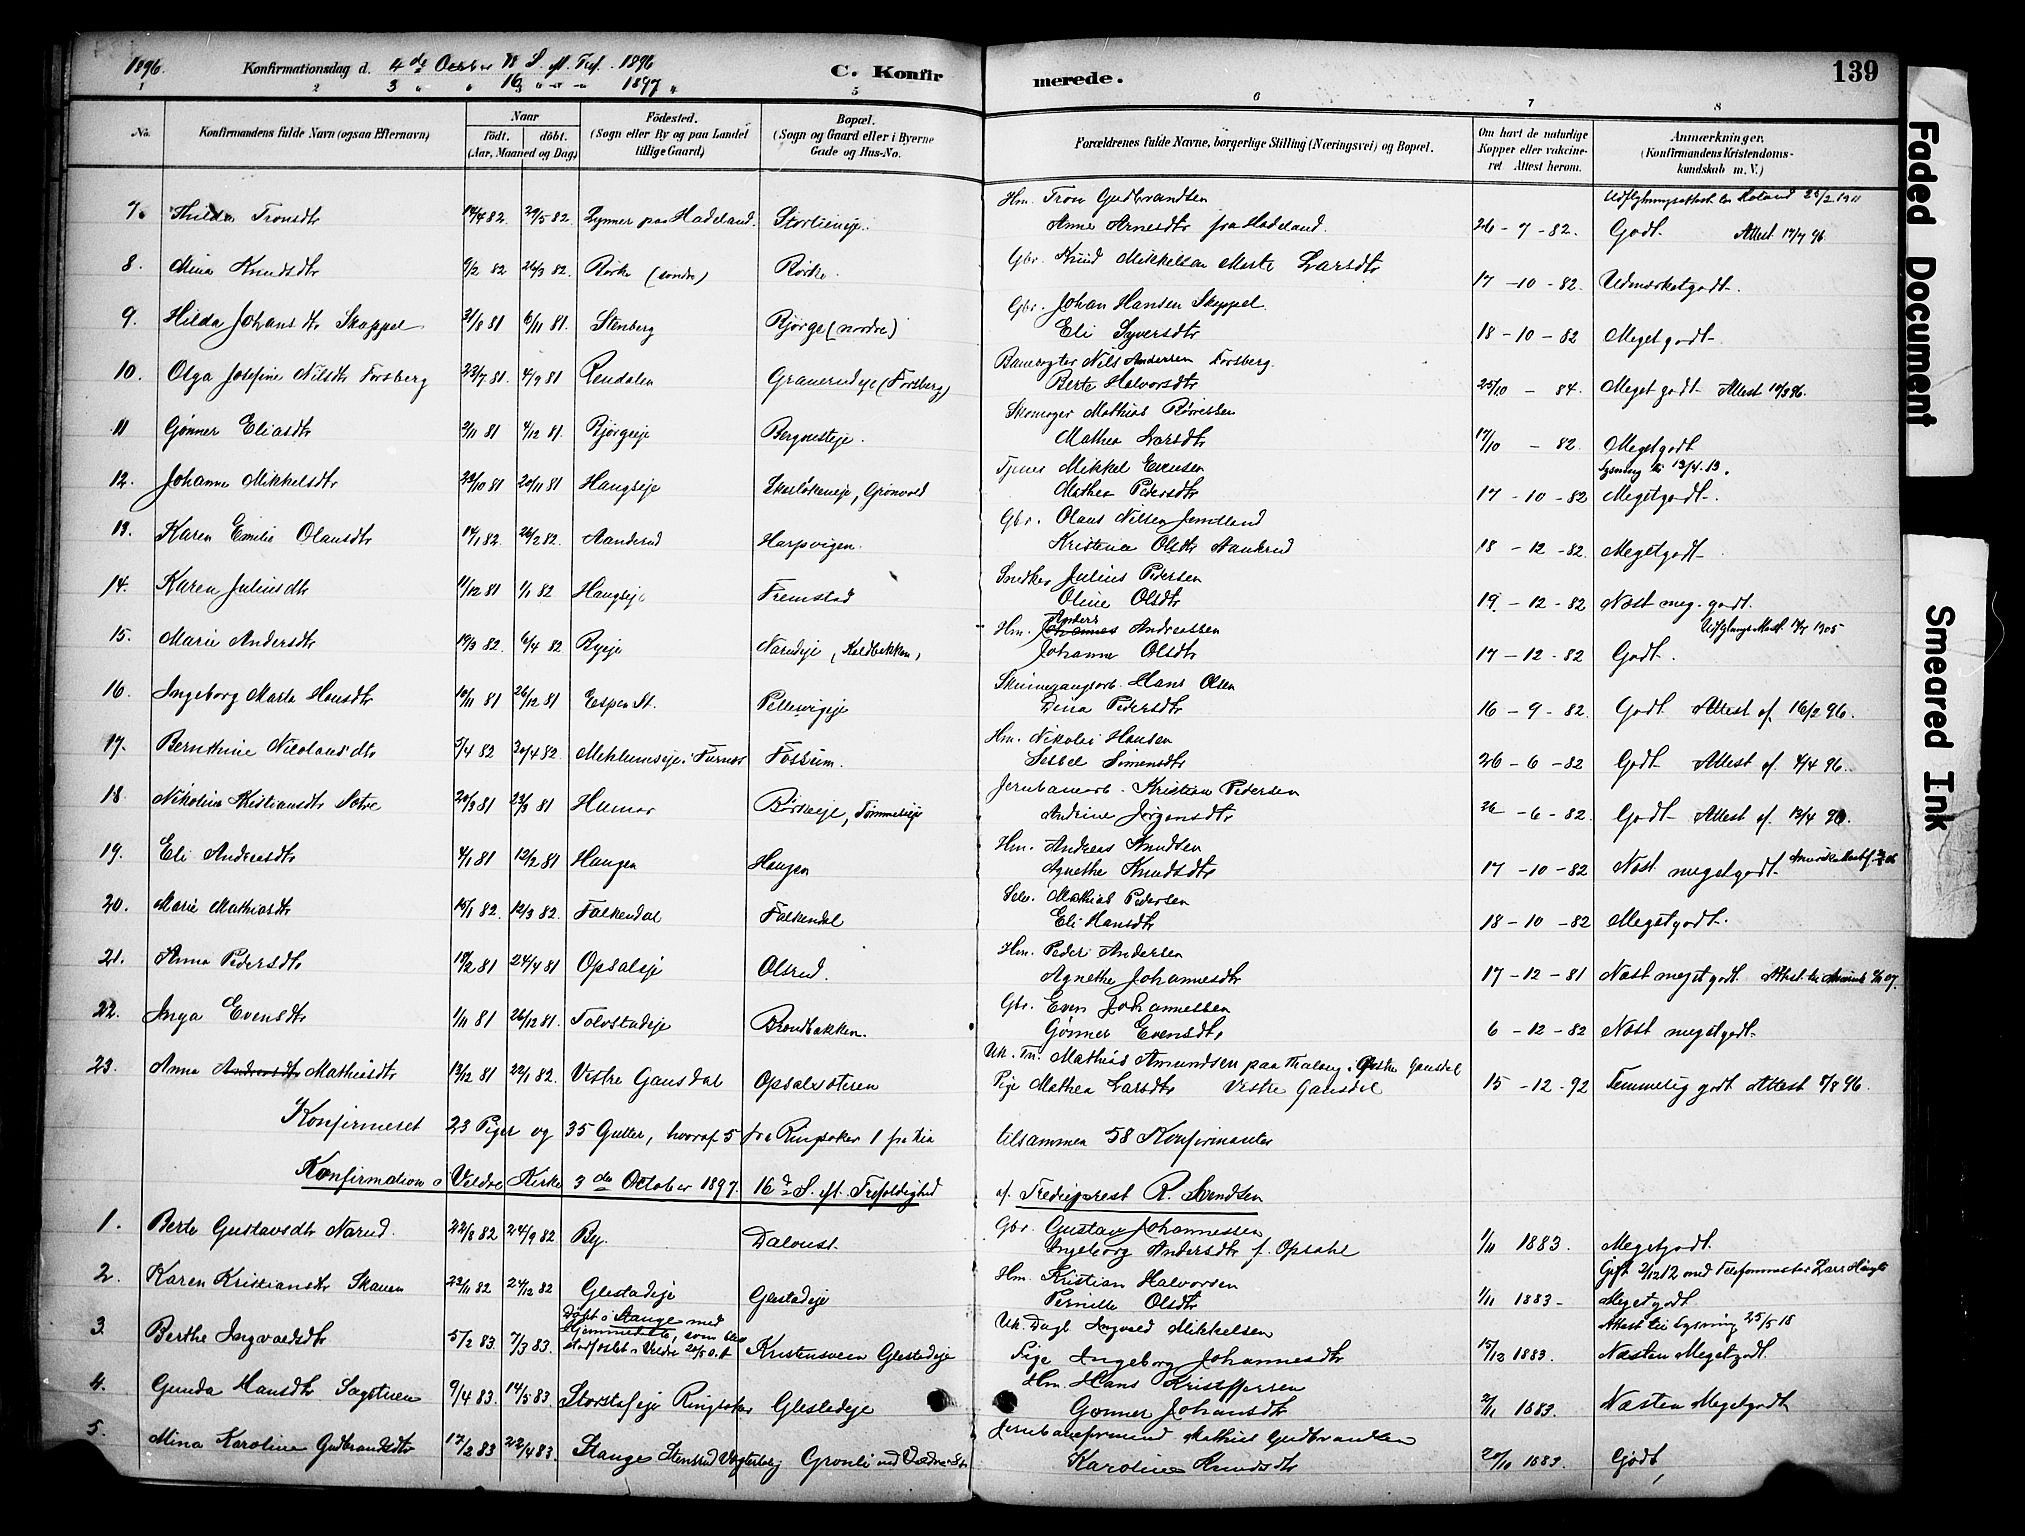 1896. Konfirmationsdag d. 4de October 18 S. e. Tref. 1896
3 " " 16 " " " 1897 "
C. Konfirmerede. 139
1 2 3 4 5 6 7 8
No. Konfirmandens fulde Navn (ogsaa Efternavn) Naar født. døbt. (Aar, Maaned og Dag) Fødested. (Sogn eller By og paa Landet tillige Gaard) Bopæl. (Sogn og Gaard eller i Byerne Gade og Hus-No. Forældrenes fulde Navne, borgerlige Stilling (Næringsvei) og Bopæl. Om havt de naturlige Kopper eller vakcineret Attest herom. Anmærkninger. (Konfirmandens Kristendomskundskab m. V.)
7. Thilda Tronsdtr 14/4 82 29/5 82 Lynner paa Hadeland Stortieneje. Hm. Tron Gudbrandsen
Anne Arnesdtr fra Hadeland. 26-7-82. Godt. Attest 17/7 96
8. Mina Knudsdtr 9/2 82 26/3 82. Rørke (søndre) Rørke. Gbr. Knud Mikkelsen Marte Larsdtr 17-10-82. Udmærketgodt.
9. Hilda Johansdtr Skappel 31/8 81 6/11 81. Stenberg Bjørge (nordre) Gbr. Johan Hansen Skappel
Eli Syversdtr 18-10-82 Megetgodt
10. Olga Josefine Nilsdtr Forsberg 22/7 81. 4/9 81 Rendalen Graverudeje (Forsberg) Banevogter Nils Andersen Forsberg.
Berte Halvorsdtr 25/10 - 84. Meget godt Attest 10/3 96.
11 Gønner Eliasdtr 2/11 81 4/12 81. Bjørgeeje Bergeseteje. Skomager Mathias
Mathea Larsdtr 17/10 - 82 Megetgodt
12. Johanne Mikkelsdtr 22/10 81 20/11 81 Haugseje Skarløkeneje, Grønvold Tjener Mikkel Evensen
Mathea Pedersdtr 17-10-82 Megetgodt.
Lysning til 13/4-13.
13. Karen Emilie Olausdtr 14/1 82. 26/2 82. Aanderud Harpvigen. Gbr. Olaus Nilsen Jemtland
Kristina Olsdtr Aanderud 18-12-82. Megetgodt
14. Karen Juliusdtr 11/12 81 1/1 82 Haugseje Fremstad Snedker Julius Pedersen
Oline Olsdtr 19-12-82 Næst meg. godt.
15. Marie Andersdtr 19/3 82. 6/4 82 Byeje Narudeje, (Koldbekken, Hm. Anders Johannes Andreassen
Johanne Olsdtr 17-12-82 Godt.
16. Ingeborg Marta Hansdtr 10/11 81 26/12 81 Espen St. Pellervigeje Hans Olsen
Dina Pedersdtr 16-9-82. Godt Attest af 16/2 96.
17. Bernthine Nicolausdtr 5/4 82 30/4 82. Meklumseje i Furnes Fossum. Hm. Nikolai Hansen
Sessel Simensdtr 26-6-82 Godt Attest af 7/4 96.
18. Nikolina Kristiansdtr Sætre 20/3 81 23/3 81 Hamar Børkeeje, Tømmeseje Jernbanearb. Kristian Pedersen
Andrine Jørgensdtr 26-6-82. Godt Attest af. 12/4 96.
19. Eli Andreasdtr 4/1 81 13/2 81 Haugen Haugen Hm. Andreas Knudsen
Agnethe Knudsdtr 17-10-82 Næst megetgodt.
20. Marie Mathiasdtr 15/1 82. 12/3 82. Falkendal Falkendal Selv. Mathias Pedersen
Eli Hansdtr 18-10-82 Megetgodt.
21. Anna Pedersdtr 18/2 81 24/4 81 Opsalseje Olsrud. Hm. Peder Andersen
Agnethe Johannesdtr 17-12-81 Næst megetgodt. Attest til
22. Inga Evensdtr 1/11 81 26/12 81. Tolvstadeje Brendbakken. Gbr. Even Johannessen
Gønner Evensdtr 6-12-82 Næst megetgodt.
23. Anna Andersdtr Mathiasdtr 13/12 81 22/1 82. Vestre Gausdal Opsalsæteren Uk. Tn. Mathias Amundsen paa Thalberg i Østre Gausdal
Pige Mathea Larsdtr Vestre Gausdal 15-12-92 Temmelig godt Attest 7/8 96.
Konfirmeret 23 Piger og 35 Gutter, hvoraf 5 fra Ringsaker 1 fra Kria tilsammen 58 Konfirmanter
Konfirmation i Veldre Kirke 3de October 1897. 16de S. eft. Trefoldighed af Trediepræst R. Svendsen
1. Berte Gustavsdtr Narud. 22/8 82 24/9 82 By. Dalseust. Gbr. Gustav Johannessen
Ingeborg Andersdtr f. Opsahl 1/11 1883. Megetgodt.
2. Karen Kristiansdtr Skauen 23/11 82 24/12 82 Glestadeje Glestadeje Hm. Kristian Halvorsen
Pernille Olsdtr 1/11 1883- Megetgodt.
Gift 2/12 12 med Telefonmester Lars
3. Berthe Ingvaldsdtr 5/2 83 7/3 83. Døbt i Stange med Hjemmedaab, som blev stadfæstet i Veldre 20/5 s. A Kristensveen Glestadeje Uk. Dagl. Ingvald Mikkelsen
Pige Ingeborg Johannesdtr 15/12 1883. Næsten Megetgodt.
Attest til Lysning 25/5 18
4. Gunda Hansdtr Sagstuen 9/4 83 14/5 83 Storstaseje Ringsaker Glestadeje Hm. Hans Kristoffersen
Gønner Johansdtr 2/11 1883. Næsten Megetgodt
5. Mina Karoline Gudbrandsdtr 17/2 83 22/4 83. Stange Stensrud Vogterbolig Grønli ved Veldre St. Jernbaneformand Mathies Gudbrandsen
Karoline Knudsdtr 20/10 1883. Godt,
Faded Document
Smeared Ink